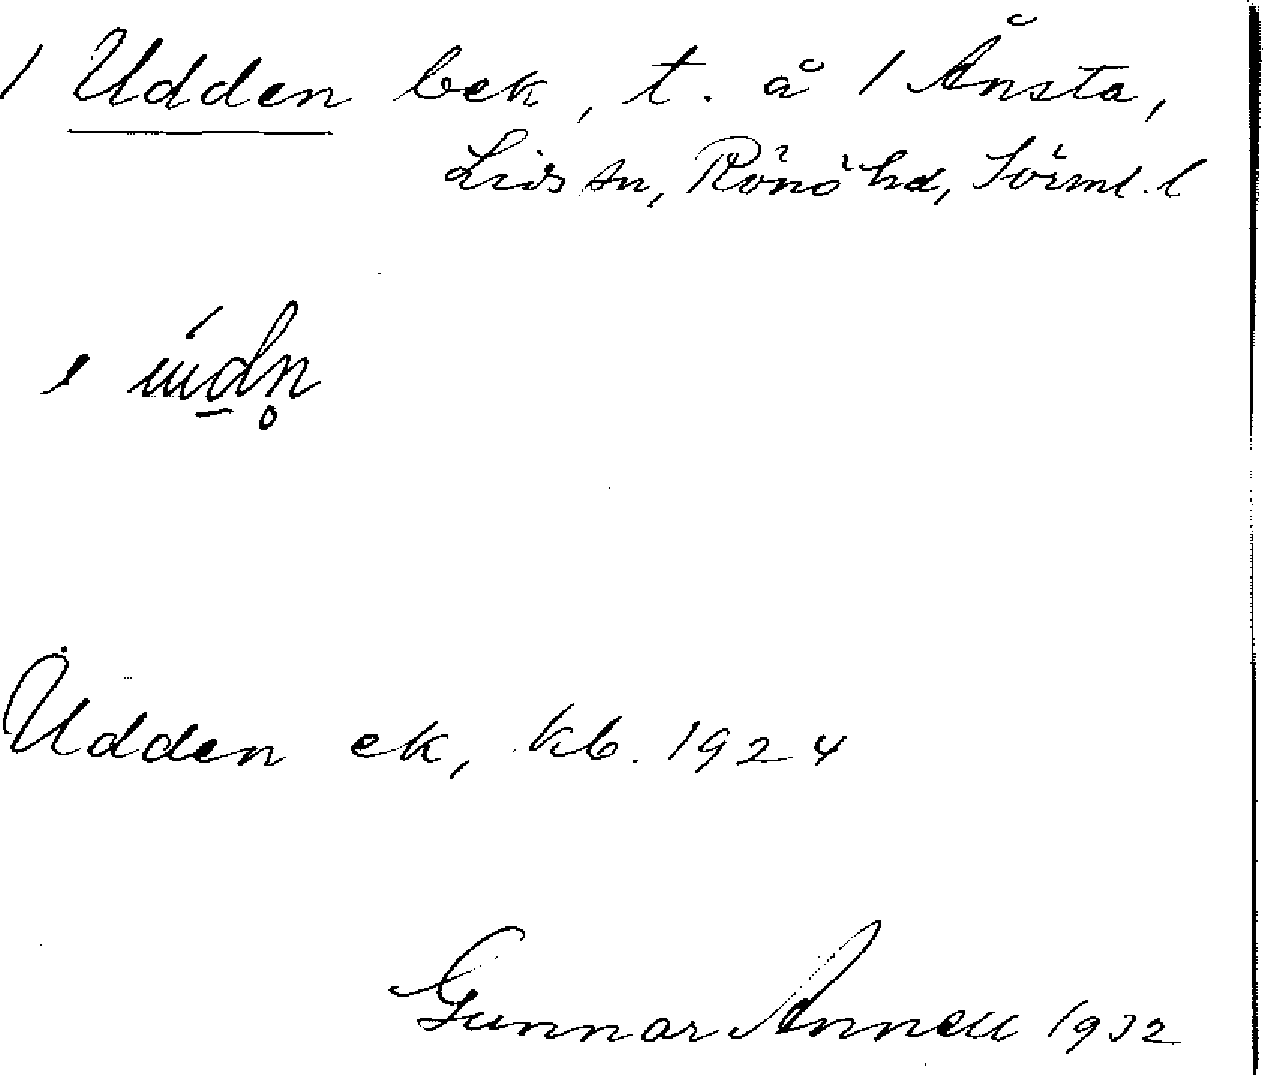 / Udden bek, t. å / Ånsta,
Lids sn, Rönö hd, Sörml. l
Udden ek, kb. 1924
Gunnar Annell 1932